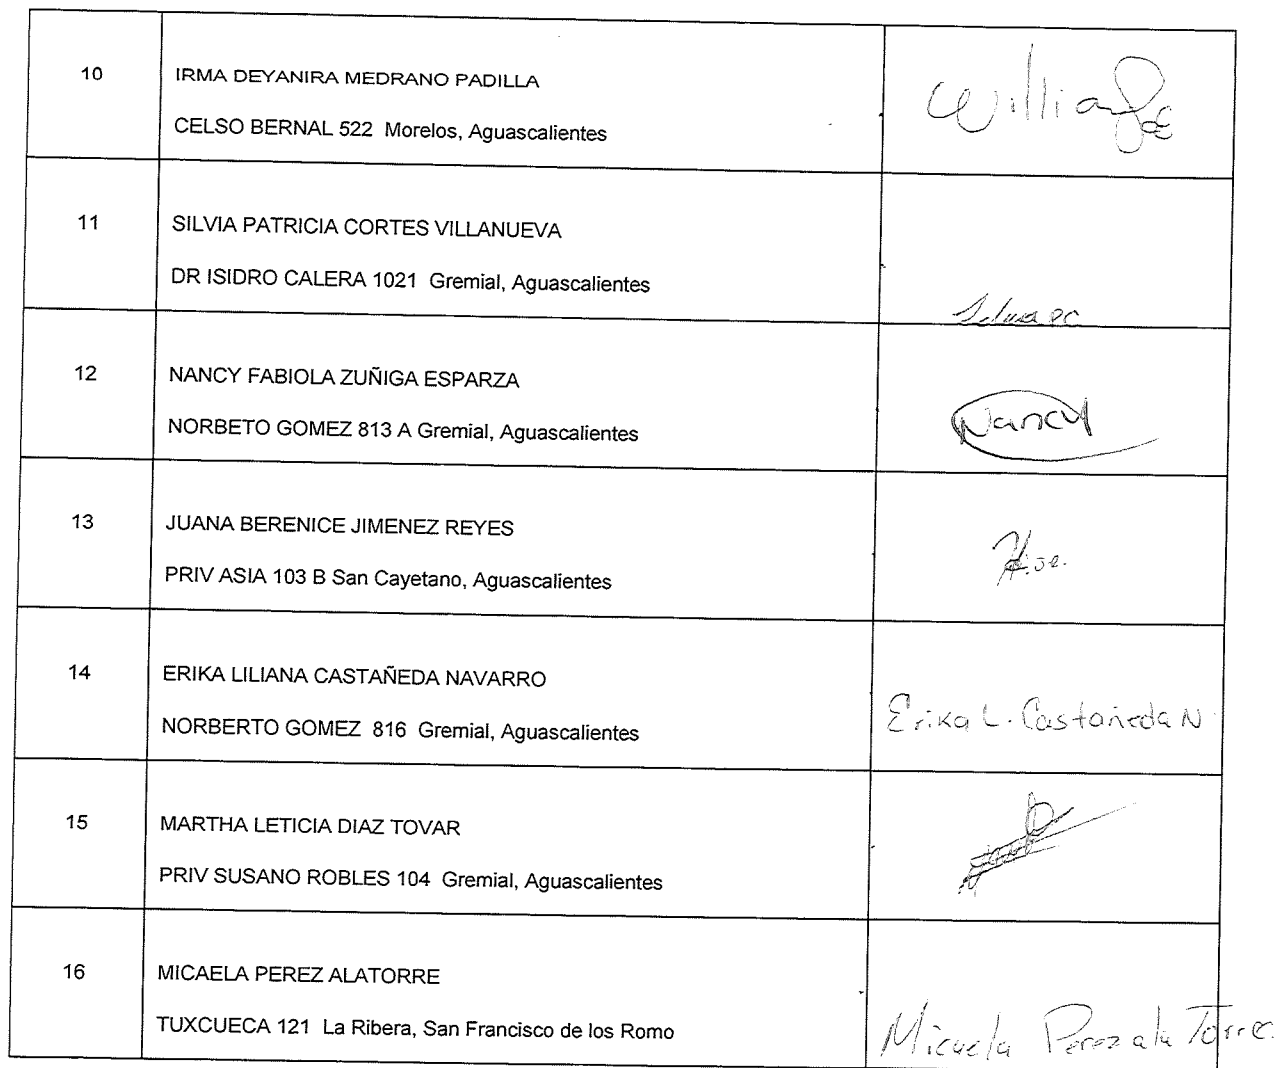 10
IRMA DEYANIRA MEDRANO PADILLA
CELSO BERNAL 522 Morelos, Aguascalientes
11
SILVIA PATRICIA CORTES VILLANUEVA
DR ISIDRO CALERA 1021 Gremial, Aguascalientes
12
NANCY FABIOLA ZUÑIGA ESPARZA
Nancy
NORBETO GOMEZ 813 A Gremial, Aguascalientes
13
JUANA BERENICE JIMENEZ REYES
PRIV ASIA 103 B San Cayetano, Aguascalientes
14
ERIKA LILIANA CASTAÑEDA NAVARRO
Erika L. Castañeda N
NORBERTO GOMEZ 816 Gremial, Aguascalientes
15
MARTHA LETICIA DIAZ TOVAR
PRIV SUSANO ROBLES 104 Gremial, Aguascalientes
16
MICAELA PEREZ ALATORRE
TUXCUECA 121 La Ribera, San Francisco de los Romo
Micaela Perez ala Torre